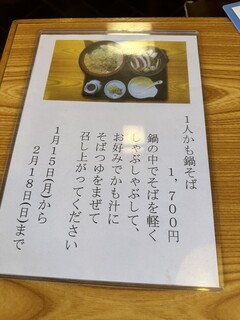 1人かも鍋そば
1，700円
鍋の中でそばを軽く
しゃぶしゃぶして、
お好みでかも汁に
そばつゆをまぜて
召し上がってください
1月15日(月)から
2月18日(日)まで